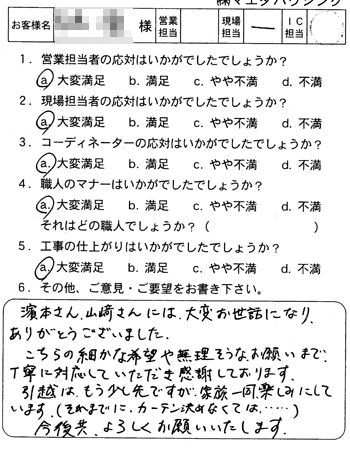 ㈱マエダハウジング
お客様名 様 営業担当 現場担当 ー IC担当
1．営業担当者の応対はいかがでしたでしょうか？
a. 大変満足 b. 満足 c. やや不満 d. 不満
2．現場担当者の応対はいかがでしたでしょうか？
a. 大変満足 b. 満足 c. やや不満 d. 不満
3．コーディネーターの応対はいかがでしたでしょうか？
a. 大変満足 b. 満足 c. やや不満 d. 不満
4．職人のマナーはいかがでしたでしょうか？
a. 大変満足 b. 満足 c. やや不満 d. 不満
それはどの職人でしょうか？（ ）
5．工事の仕上がりはいかがでしたでしょうか？
a. 大変満足 b. 満足 c. やや不満 d. 不満
6．その他、ご意見・ご要望をお書き下さい。
濱本さん、山崎さんには、大変お世話になり、
ありがとうございました。
こちらの細かな希望や無理そうなお願いまで、
丁寧に対応していただき感謝しております。
引越は、もう少し先ですが、家族一同楽しみにして
います。（それまでに、カーテン決めなくては・・・・・）
今後共、よろしくお願いいたします。